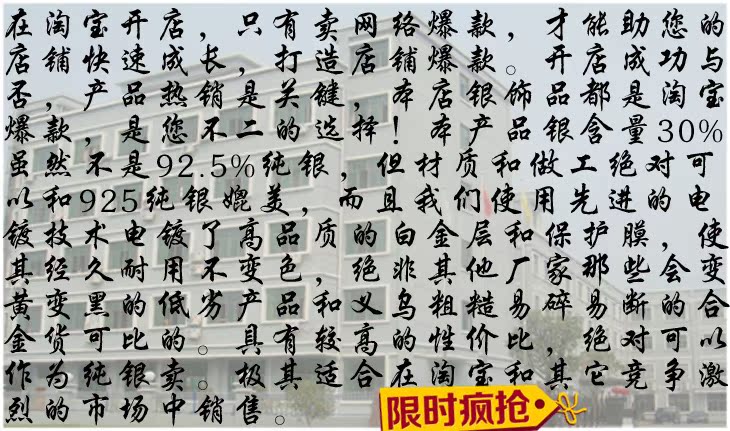 在淘宝开店，只有卖网络爆款，才能助您的
店铺快速成长，打造店铺爆款。开店成功与
否，产品热销是关键，本店银饰品都是淘宝
爆款，是您不二的选择！本产品银含量30%
虽然不是92.5%纯银，但材质和做工绝对可
以和925纯银媲美，而且我们使用先进的电
镀技术电镀了高品质的白金层和保护膜，使
其经久耐用不变色，绝非其他厂家那些会变
黄变黑的低劣产品和义乌粗糙易碎易断的合
金货可比的。具有较高的性价比，绝对可以
作为纯银卖。极其适合在淘宝和其它竞争激
烈的市场中销售。
限时疯抢